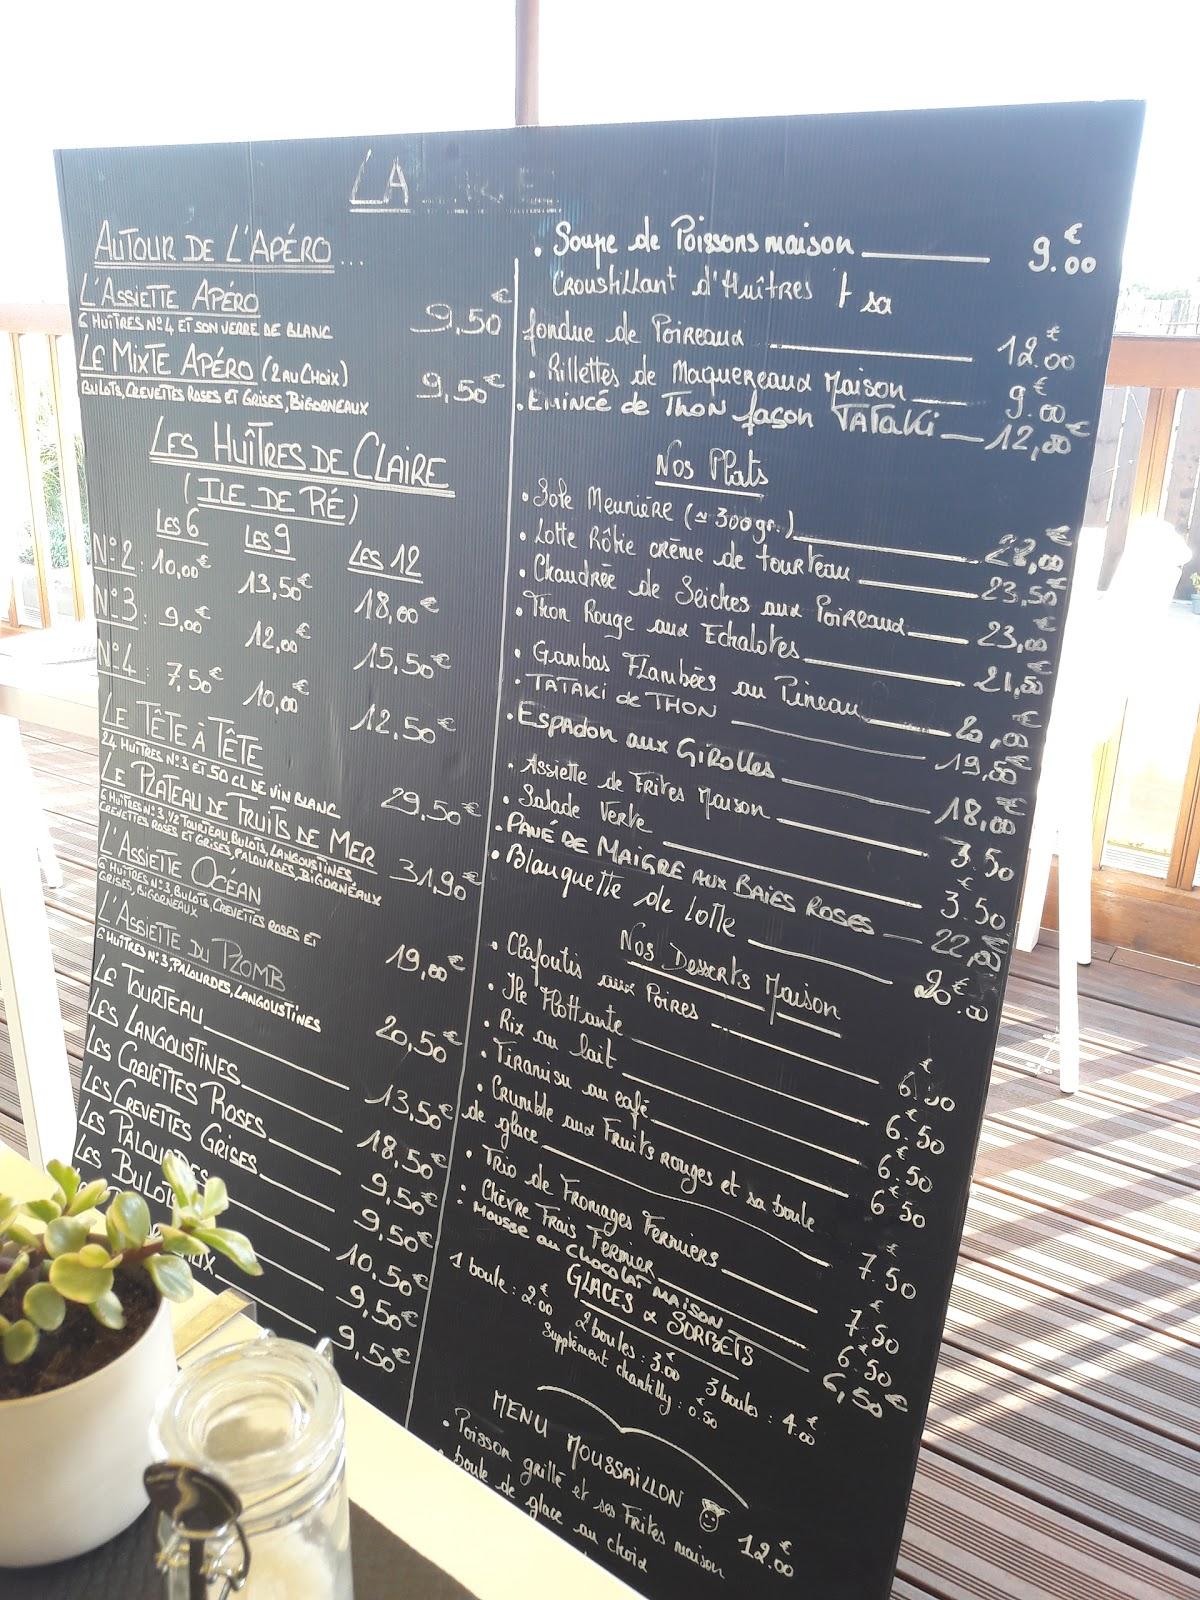 LA
AUTOUR DE L'APÉRO...
L'ASSIETTE APÉRO
6 HUÎTRES N°4 ET SON VERRE DE BLANC 9,50€
LE MIXTE APÉRO (2 AU CHOIX)
BULOTS, CREVETTES ROSES ET GRISES, BIGORNEAUX 9,50€
LES HUÎTRES DE CLAIRE
(ILE DE RÉ)
LES 6 LES 9 LES 12
N°2: 10,00€ 13,50€ 18,00€
N°3: 9,00€ 12,00€ 15,50€
N°4: 7,50€ 10,00€ 12,50€
LE TÊTE À TÊTE
24 HUÎTRES N°3 ET 50 CL DE VIN BLANC 29,50€
LE PLATEAU DE FRUITS DE MER
6 HUÎTRES N°3, 1/2 TOURTEAU, BULOTS, LANGOUSTINES,
CREVETTES ROSES ET GRISES, PALOURDES, BIGORNEAUX 31,90€
L'ASSIETTE OCÉAN
6 HUÎTRES N°3, BULOTS, CREVETTES ROSES ET
GRISES, BIGORNEAUX 19,00€
L'ASSIETTE DU PLOMB
6 HUÎTRES N°3, PALOURDES, LANGOUSTINES 20,50€
LE TOURTEAU 13,50€
LES LANGOUSTINES 18,50€
LES CREVETTES ROSES 9,50€
LES CREVETTES GRISES 9,50€
LES PALOURDES 10,50€
LES BULOTS 9,50€
9,50€
. Soupe de Poissons maison 9.00€
Croustillant d'Huîtres et sa
fondue de Poireaux 12.00€
. Rillettes de Maquereaux Maison 9.00€
. EMINCÉ de THON façon TATAKI 12,00€
Nos Plats
. Sole Meunière (≃ 300gr.) 28,00€
. Lotte Rôtie crème de tourteau 23,50€
. Chaudrée de Seiches aux Poireaux 23,00€
. Thon Rouge aux Echalotes 21,50€
. Gambas Flambées au Pineau 20,00€
. TATAKI de THON 19,50€
. ESPADON aux GIROLLES 18,00€
. Assiette de Frites Maison 3.50€
. Salade Verte 3.50€
. PAVÉ DE MAIGRE AUX BAIES ROSES 22,00€
. Blanquette de lotte 20.00€
Nos Desserts Maison
. Clafoutis aux Poires 6.50€
. Ile Flottante 6.50€
. Rix au lait 6.50€
. Tiramisu au café 6.50€
. Crumble aux Fruits rouges et sa boule
de glace 7.50€
. Trio de Fromages Fermiers 7.50€
. Chèvre Frais Fermier 6.50€
. MOUSSE au CHOCOLAT MAISON 6,50€
GLACES & SORBETS
1 boule : 2.00€ 2 boules : 3.00€ 3 boules : 4.00€
Supplément chantilly : 0.50€
MENU MOUSSAILLON 12.00€
. Poisson grillé et ses Frites maison
boule de glace au choix